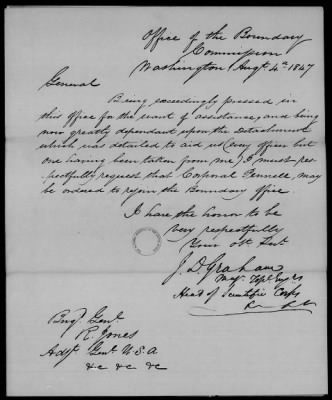 Office of the Boundary
Commission
Washington, Augt. 4th 1847
General
Being exceedingly pressed in
this Office for the want of assistance, and being
now greatly dependant upon the Detachment
which was detailed to aid us (every officer but
one having been taken from me) I must res-
pectfully request that Corporal Pennell may
be ordered to rejoin the Boundary office
I have the honor to be
very respectfully
Your Obt Svt
J. D. Graham
Maj. Topl. Engrs
Head of Scientific Corps
&c &c
Brig. Genl.
R. Jones
Adjt. Genl. U.S.A
&c &c &c